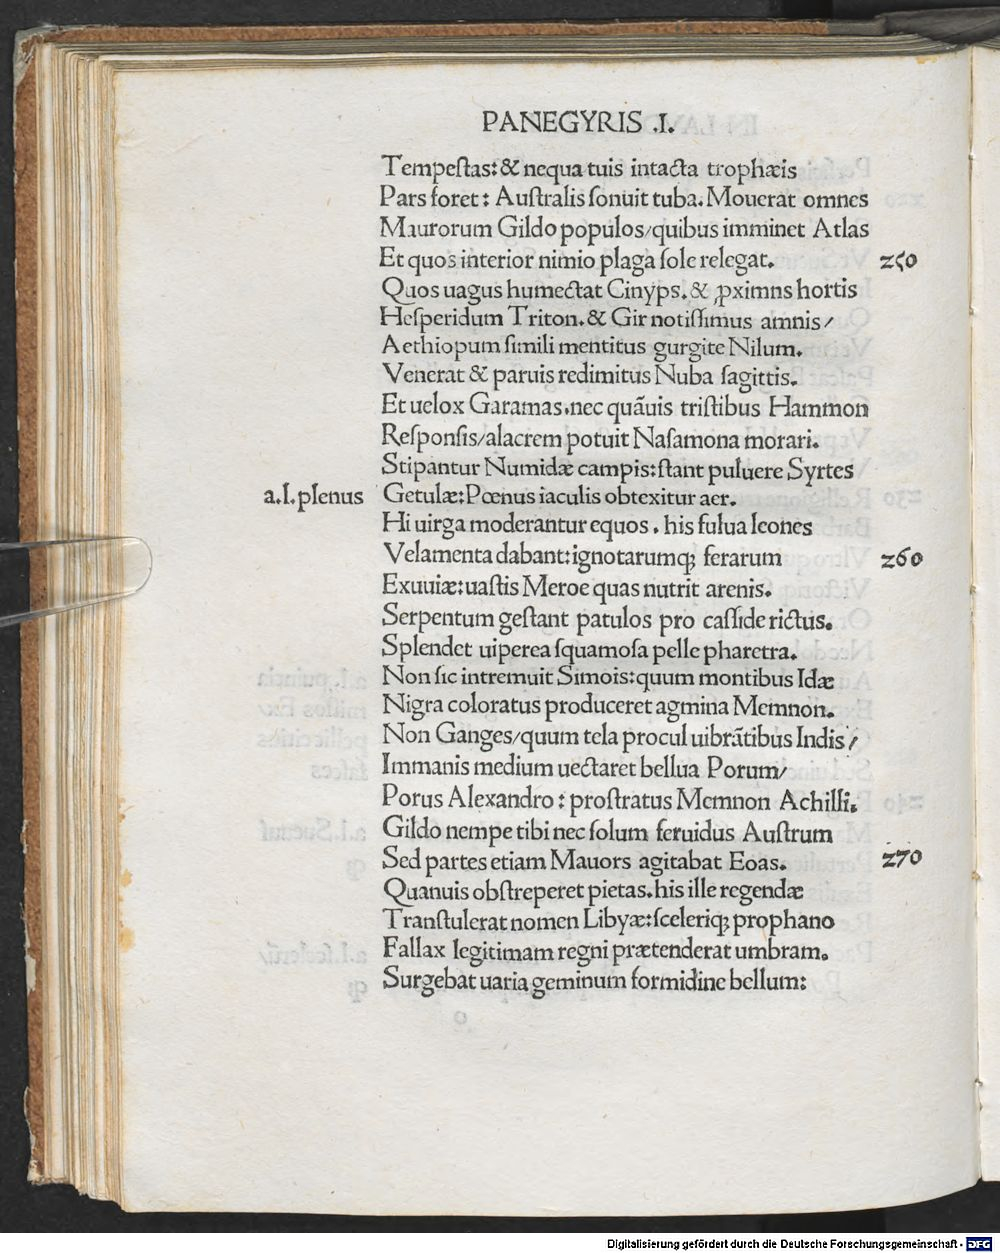 PANEGYRIS .I.
Tempeſtas: & nequa tuis intacta trophæis
Pars foret: Auſtralis ſonuit tuba. Mouerat omnes
Maurorum Gildo populos/quibus imminet Atlas
Et quos interior nimio plaga ſole relegat. 250
Quos uagus humectat Cinyps. & ꝓximns hortis
Heſperidum Triton. & Gir notiſſimus amnis/
Aethiopum ſimili mentitus gurgite Nilum.
Venerat & paruis redimitus Nuba ſagittis.
Et uelox Garamas. nec quãuis triſtibus Hammon
Reſponſis/alacrem potuit Naſamona morari.
Stipantur Numidæ campis: ſtant puluere Syrtes
a.l. plenus Getulæ: Pœnus iaculis obtexitur aer.
Hi uirga moderantur equos. his fulua leones
Velamenta dabant: ignotarumq; ferarum 260
Exuuiæ: uaſtis Meroe quas nutrit arenis.
Serpentum geſtant patulos pro caſſide rictus.
Splendet uiperea ſquamoſa pelle pharetra.
Non ſic intremuit Simois: quum montibus Idæ
Nigra coloratus produceret agmina Memnon.
Non Ganges/quum tela procul uibrãtibus Indis/
Immanis medium uectaret bellua Porum/
Porus Alexandro: proſtratus Memnon Achilli.
Gildo nempe tibi nec ſolum feruidus Auſtrum
Sed partes etiam Mauors agitabat Eoas. 270
Quanuis obſtreperet pietas. his ille regendæ
Tranſtulerat nomen Libyæ: ſceleriq; prophano
Fallax legitimam regni prætenderat umbram.
Surgebat uaria geminum formidine bellum:
Digitalisierung gefördert durch die Deutsche Forschungsgemeinschaft - DFG